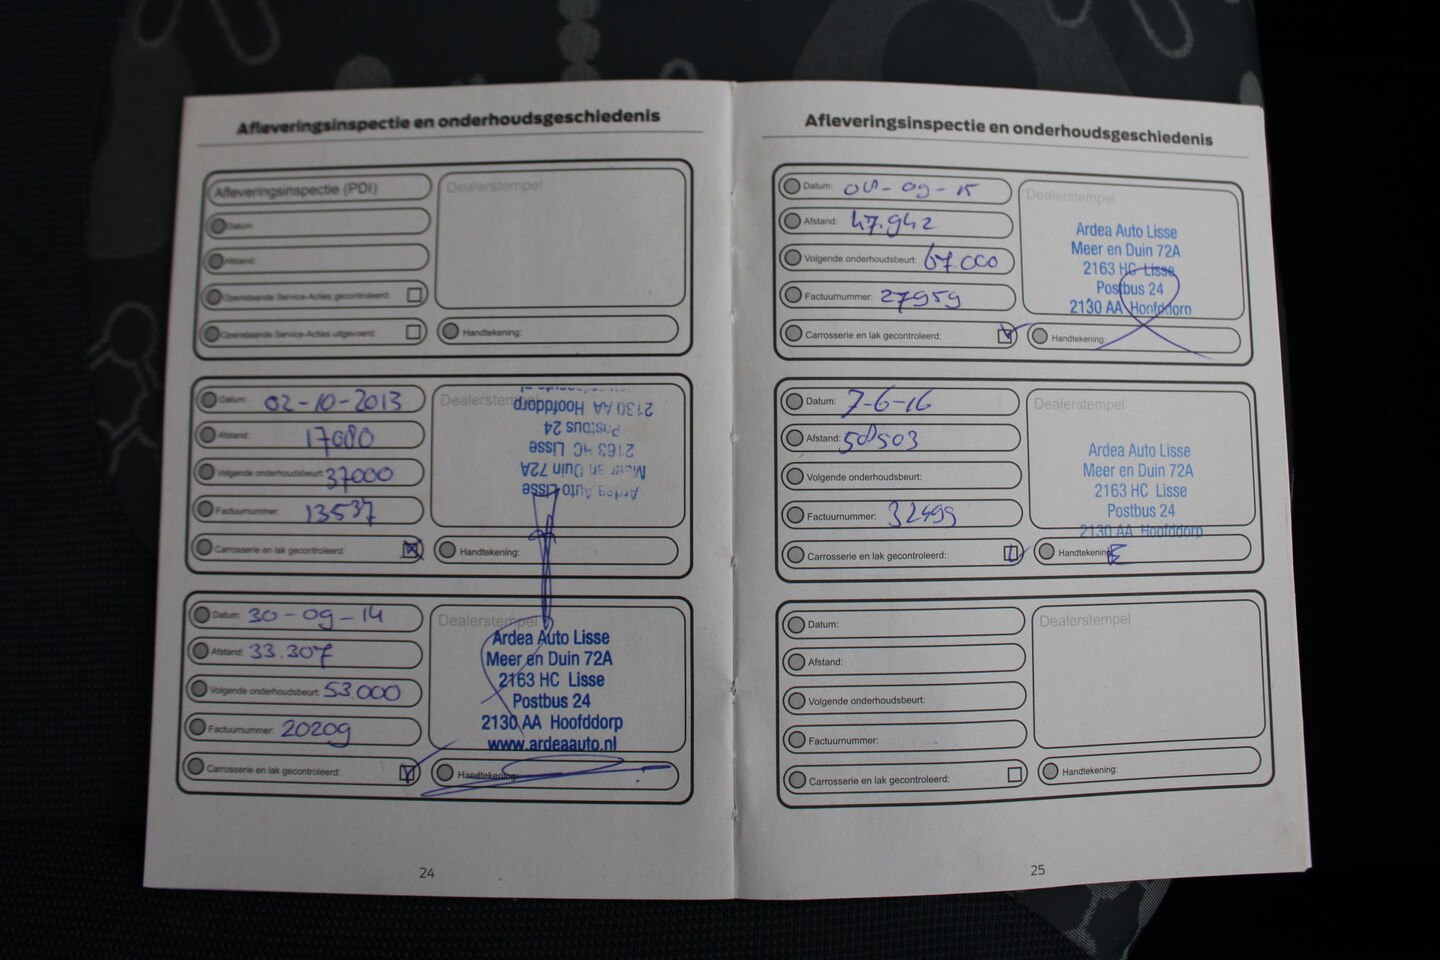 Afleveringsinspectie en onderhoudsgeschiedenis
Afleveringsinspectie (PDI)
Datum:
Afstand:
Openstaande Service-Acties gecontroleerd:
Openstaande Service-Acties uitgevoerd:
Dealerstempel
Handtekening:
Datum: 02-10-2013
Afstand: 17080
Volgende onderhoudsbeurt: 37000
Factuurnummer: 13537
Carrosserie en lak gecontroleerd:
Dealerstempel
Ardea Auto Lisse
Meer en Duin 72A
2163 HC Lisse
Postbus 24
2130 AA Hoofddorp
Handtekening:
Datum: 30-09-14
Afstand: 33.307
Volgende onderhoudsbeurt: 53.000
Factuurnummer: 20209
Carrosserie en lak gecontroleerd:
Dealerstempel
Ardea Auto Lisse
Meer en Duin 72A
2163 HC Lisse
Postbus 24
2130 AA Hoofddorp
www.ardeaauto.nl
Handtekening:
24
Afleveringsinspectie en onderhoudsgeschiedenis
Datum: 08-09-15
Afstand: 47.942
Volgende onderhoudsbeurt: 67.000
Factuurnummer: 27959
Carrosserie en lak gecontroleerd:
Dealerstempel
Ardea Auto Lisse
Meer en Duin 72A
2163 HC Lisse
Postbus 24
2130 AA Hoofddorp
Handtekening:
Datum: 7-6-16
Afstand: 58503
Volgende onderhoudsbeurt:
Factuurnummer: 32499
Carrosserie en lak gecontroleerd:
Dealerstempel
Ardea Auto Lisse
Meer en Duin 72A
2163 HC Lisse
Postbus 24
2130 AA Hoofddorp
Handtekening:
Datum:
Afstand:
Volgende onderhoudsbeurt:
Factuurnummer:
Carrosserie en lak gecontroleerd:
Dealerstempel
Handtekening:
25